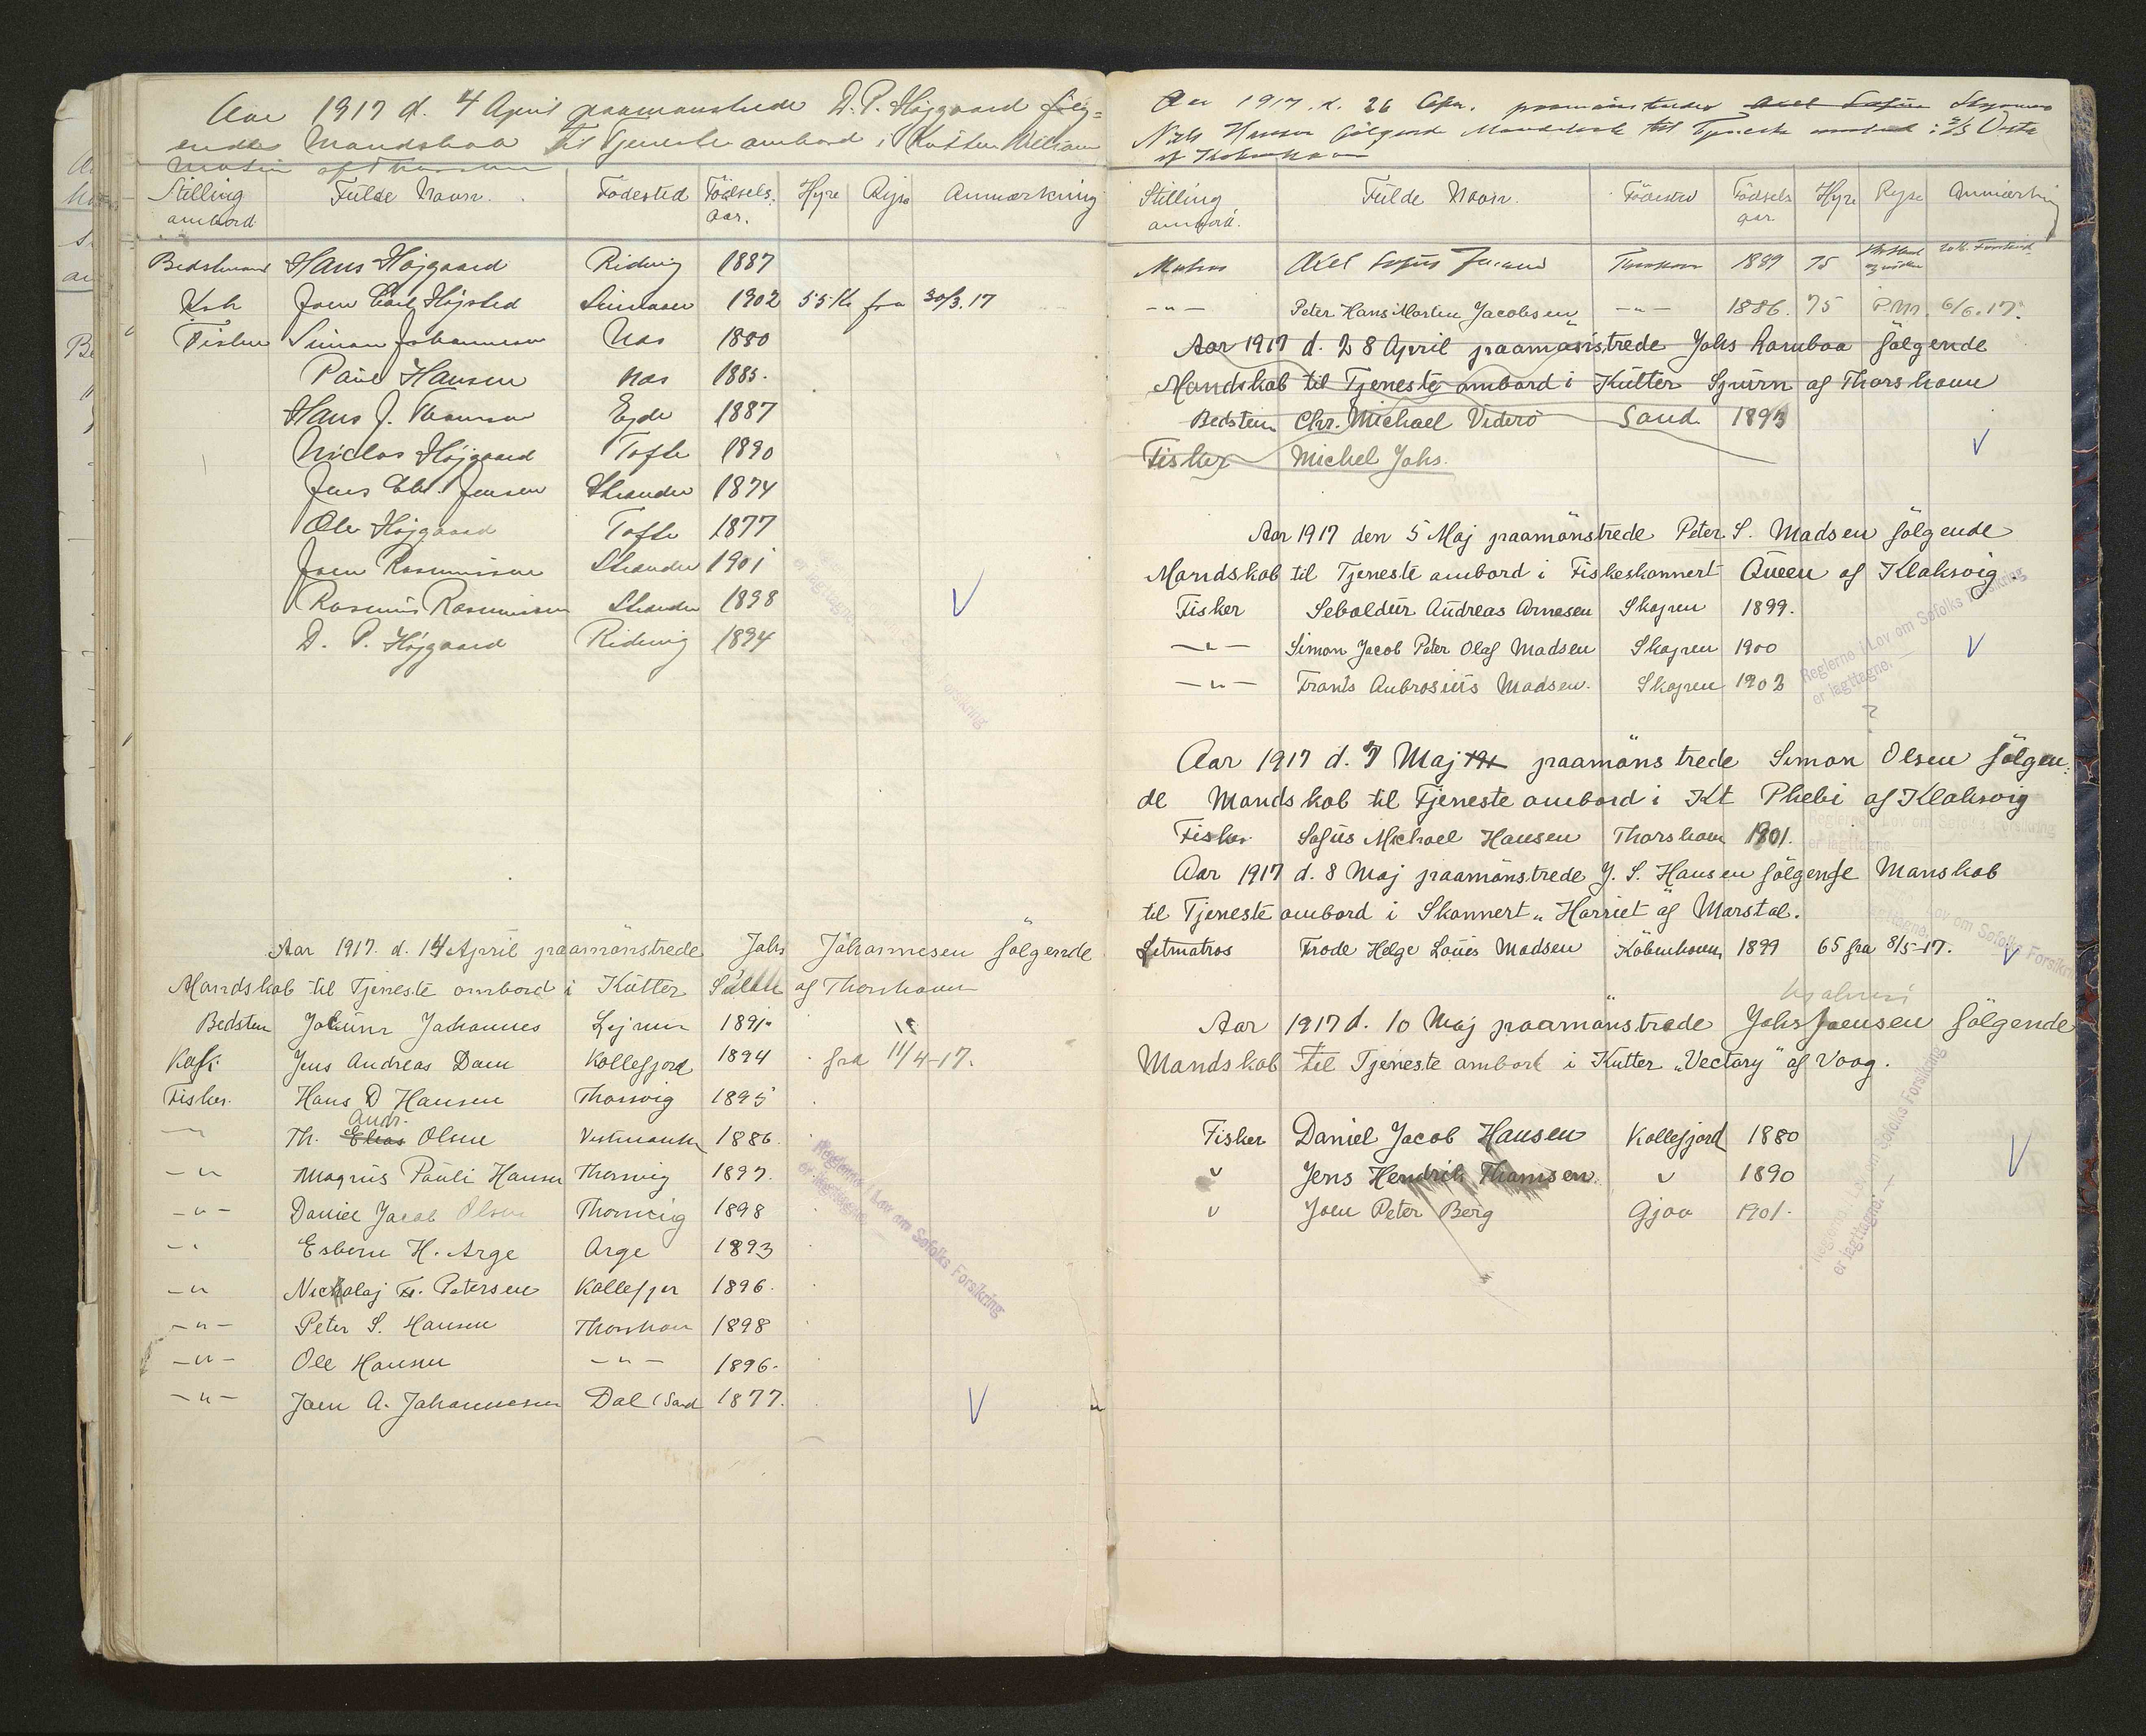 Aar 1917 d. 4 April paamønstrede D. P. Højgaard følg=
ende Mandskab til Tjeneste ombord i Kutter William
Martin af Thorshavn
Stilling ombord Fulde Navn. Födested Födsels aar. Hyre Rejse Anmærkning
Bedstmand Hans Højgaard Ridevig 1887
Kok Joen Højsted 1902 55 Kr fra 30/3.17
Fisker Simon Johannesen Nas 1880
Paul Hansen Nas 1885.
Hans J. Ejde 1887
Niclas Højgaard Tofte 1890
Jens Chr. Jensen Strander 1874
Ole Højgaard Tofte 1877
Joen Rasmussen Strander 1901
Rasmus Rasmussen Strander 1898
D. P. Højgaard Ridevig 1894
Aar 1917. d. 14 April paamönstrede Johs Jöhannesen fölgende
Mandskab til Tjeneste ombord i Kütter af Thorshavn
Bedstem Johannes 1891.
Kok. Jens Andreas Dam Kollefjord 1894 fra 11/4-17.
Fisker. Hans D Hansen Thorsvig 1895
Andr.
Th. Elias Olsen Vestmanh 1886.
-"- Magnüs Paüli Hansen Thorsvig 1897.
-"- Daniel Jacob Olsen Thorsvig 1898
-"- Esbern H. Arge Arge 1893
-"- Nickolaj Fr. Petersen Kollefjor 1896.
-"- Peter S. Hansen Thorshavn 1898
-"- Ole Hansen -"- 1896.
-"- Joen A. Johannesen Dal (Sand 1877.
Reglerne i Lov om Søfolks Forsikring
er iagttagne. —
Aar 1917. d. 26 Apr. paamönstrede Axel Sofus Styrmand
Niels Hansen følgende Mandskab til Tjeneste ombord i S/S
Stilling ombord. Fülde Navn. Födested Födsels aar Hyre Rejse Anmærkning
Matros Axel Sofus Thorshavn 1889 75
-"- Peter Hans Martin Jacobsen -"- 1886. 75 P.M. 6/6.17.
Aar 1917 d. 28 April paamönstrede Johs Kamban fölgende
Mandskab til Tjeneste ombord i Kütter Spürn af Thorshavn
Bedstem Chr. Michael Viderö Sand 1893
Fisker Michel Johs.
Aar 1917 den 5 Maj paamönstrede Peter S. Madsen fölgende
Mandskab til Tjeneste ombord i Fiskeskonnert Queen af Klaksvig.
Fisker Sebaldür Andreas Arnesen Skopen 1899.
-"- Simon Jacob Peter Olaf Madsen Skopen 1900
-"- Frants Ambrosiüs Madsen. Skopen 1902
Reglerne i Lov om Søfolks Forsikring
er iagttagne. —
Aar 1917 d. 7 Maj 191 paamönstrede Simon Olsen fölgen=
de Mandskab til Tjeneste ombord i Kt Phebi af Klaksvig
Fisker Sofüs Michael Hansen Thorshavn 1901.
Reglerne i Lov om Søfolks Forsikring
er iagttagne. —
Aar 1917 d. 8 Maj paamönstrede J. S. Hansen fölgende Manskab
til Tjeneste ombord i Skonnert „Harriet" af Marstal.
Letmatros Frode Helge Loüis Madsen Köbenhavn 1899 65 fra 8/5-17.
Aar 1917 d. 10 Maj paamönstrede Johs Joensen fölgende
Mandskab til Tjeneste ombord i Kutter „Vectory" af Vaag.
Fisker Daniel Jacob Hansen Kollefjord 1880
" Jens Hendrik Thomsen " 1890
" Joen Peter Berg Gjov 1901.
Reglerne i Lov om Søfolks Forsikring
er iagttagne. —